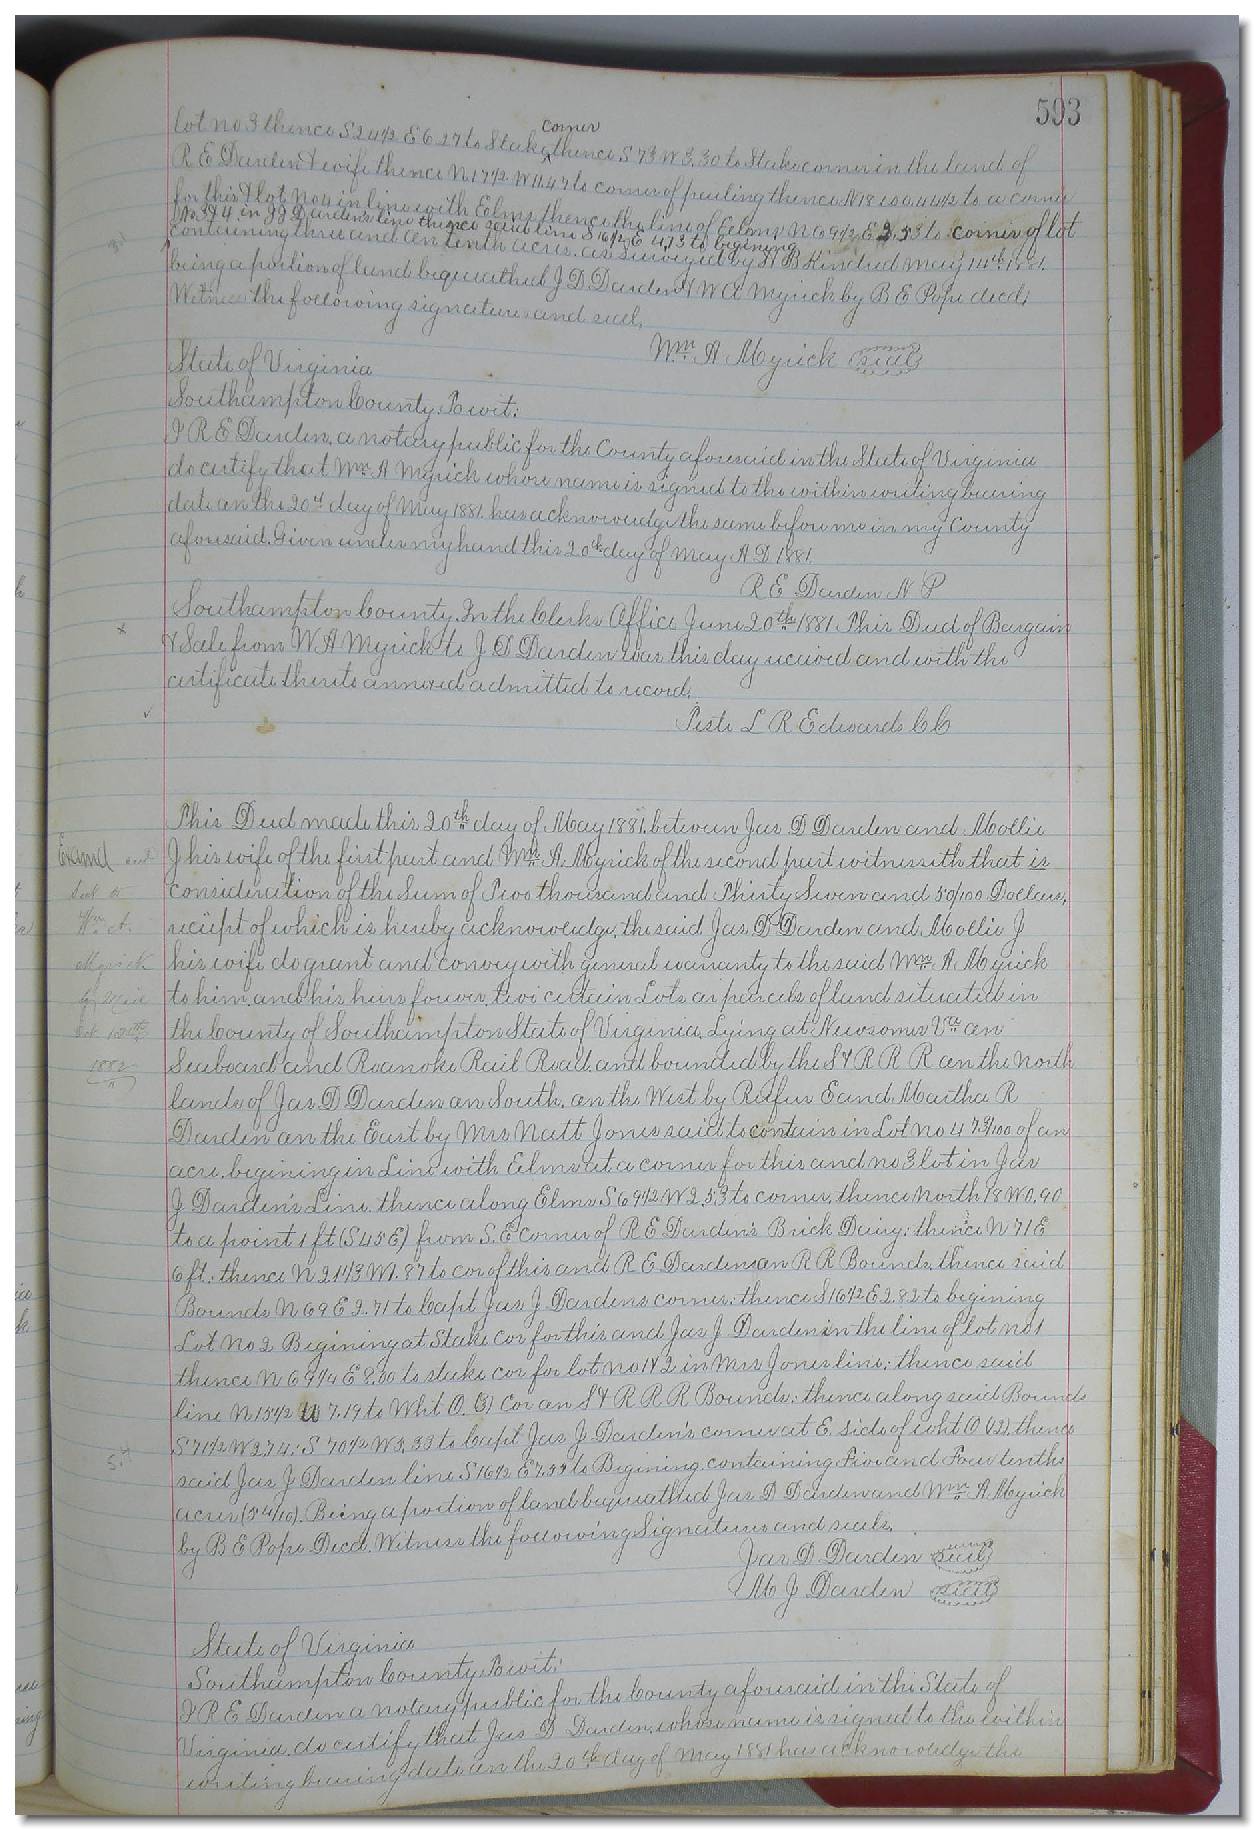 593
lot no 3 thence S 24 1/2 E 6.27 to Stake corner thence S 73 W 3.30 to Stake corner in the land of
R E Darden & wife thence N. 17 1/2 W 11.47 to corner of thence N 18 W 0.44 1/2 to a corner
for this & lot No 4 in line with Elms thence the line of Elms N 69 1/2 E 2.53 to corner of lot
No 3 & 4 in J J Darden's line thence said line S 16 1/2 E 4.73 to begining
containing three and one tenth acres. as surveyed by H B Kindred May 14th 1881.
3.1
being a portion of land bequeathed J D Darden & W A Myrick by B E Pope decd;
Witness the following signature and seal.
Wm A Myrick seal
State of Virginia
Southampton County, Towit:
I R E Darden, a notary public for the County aforesaid in the State of Virginia
do certify that Wm A Myrick whose name is signed to the within writing bearing
date on the 20th day of May 1881 has acknowledge the same before me in my County
aforesaid. Given under my hand this 20th day of May A D 1881.
R E Darden N P
Southampton County. In the Clerks Office June 20th 1881. This Deed of Bargain
x
& Sale from W A Myrick to J D Darden was this day received and with the
certificate thereto annexed admitted to record.
Teste L R Edwards C C
This Deed made this 20th day of May 1881. between Jas D Darden and Mollie
J his wife of the first part and Wm A Myrick of the second part witnesseth that is
consideration of the Sum of Two thousand and Thirty Seven and 50/100 Dollars,
receipt of which is hereby acknowledge, the said Jas. D Darden and Mollie J
his wife do grant and convey with general warranty to the said Wm A Myrick
to him, and his heirs forever, two certain Lots or parcels of land situated in
the County of Southampton State of Virginia, Lying at Newsoms Va on
Seaboard and Roanoke Rail Road and bounded by the S & R R R on the north
lands of Jas D Darden on South, on the West by Rufus E and Martha R
Darden on the East by Mrs Natt Jones said to contain in Lot no 4 73/100 of an
acre. begining in Line with Elms at a corner for this and no 3 lot in Jas
J Darden's Line. thence along Elms S 69 1/2 W 2.53 to corner, thence North 18 W 0.90
to a point 1 ft (S 45 E) from S. E corner of R E Darden's Brick Dairy; thence N 71 E
6 ft; thence N 21 1/3 W 1.87 to cor of this and R E Dardens on R R Bounds, thence said
Bounds N 69 E 2.71 to Capt Jas J. Dardens corner; thence S 16 1/2 E 2.82 to begining
Lot No 2 Begining at Stake cor for this and Jas J. Darden in the line of lot no 1
thence N 69 1/4 E 8.00 to stake cor for lot no 1 & 2 in Mrs Jones line; thence said
line N 15 1/2 W 7.19 to Whit O. (3) Cor on S & R R R Bounds; thence along said Bounds
S 71 1/2 W 2.74; S 70 1/2 W 5.33 to Capt Jas J Darden's corner at E. side of whit O (12), thence
said Jas J Darden line S 16 1/2 E 7.39 to Begining. containing Five and Four tenths
5.4
acres (5 4/10). Being a portion of land bequeathed Jas D Darden and Wm A Myrick
by B E Pope Decd. Witness the following Signatures and seals.
Jas D. Darden seal
M J Darden seal
Examd and
Delt to
Wm A.
Myrick
by Mail
Oct 18th
1882
State of Virginia
Southampton County, Towit:
I R E Darden a notary public for the County aforesaid in the State of
Virginia. do certify that Jas D Darden, whose name is signed to the within
writing bearing date on the 20th day of May 1881 has acknowledge the